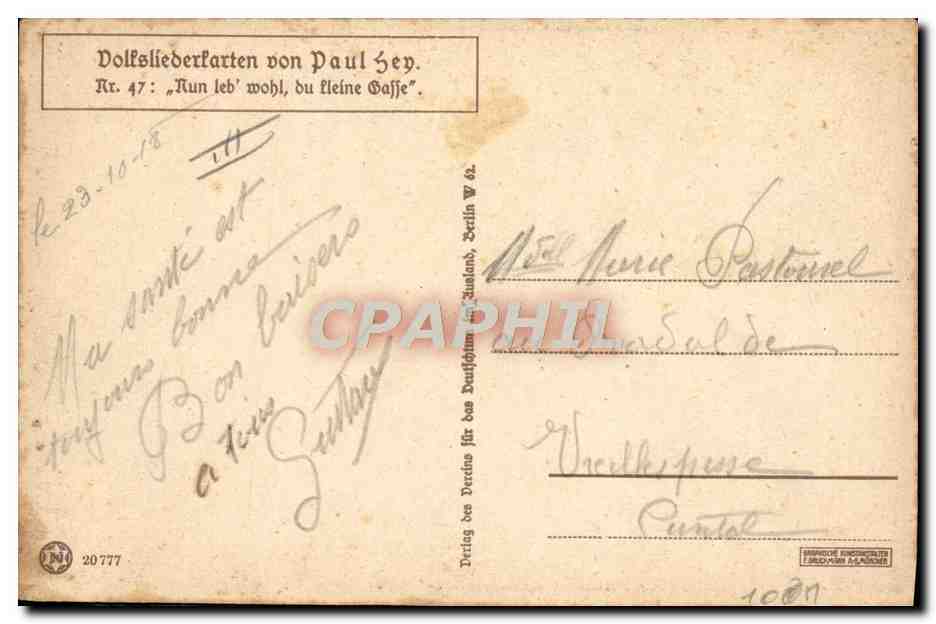 Volksliederkarten von Paul Hey.
Nr. 47: „Nun leb' wohl, du kleine Gasse".
le 23-10-18
III
Ma santé est
toujours bonne
Bon baisers
a tous
Gustave
Verlag des Vereins für das Deutschtum im Ausland, Berlin W 62.
Marie Pastourel
Vieillespesse
Cantal
CPAPHIL
20777
GRAPHISCHE KUNSTANSTALTEN
F. BRUCKMANN A-G, MÜNCHEN